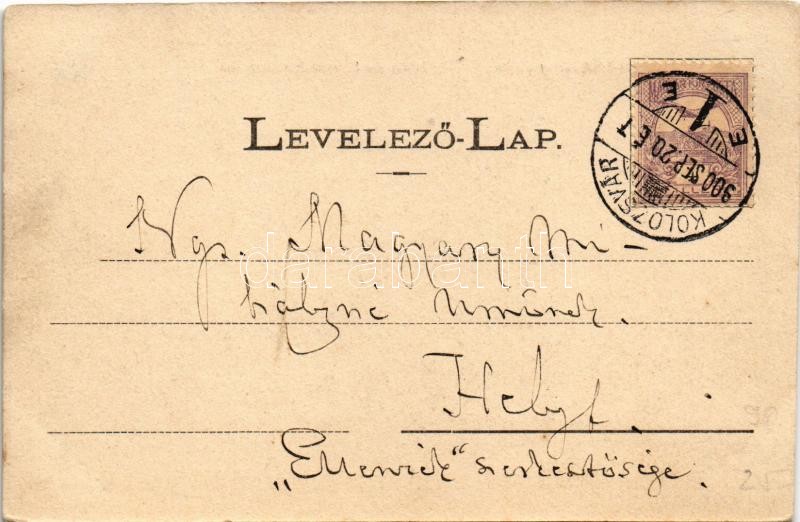 LEVELEZŐ-LAP.
KOLOZSVÁR
900 SEP. 20. E 7
Ngs. Magyary Mi-
hályné Urnőnek.
Helyt.
„Ellenzék" szerkesztősége.
darabanth
90
25